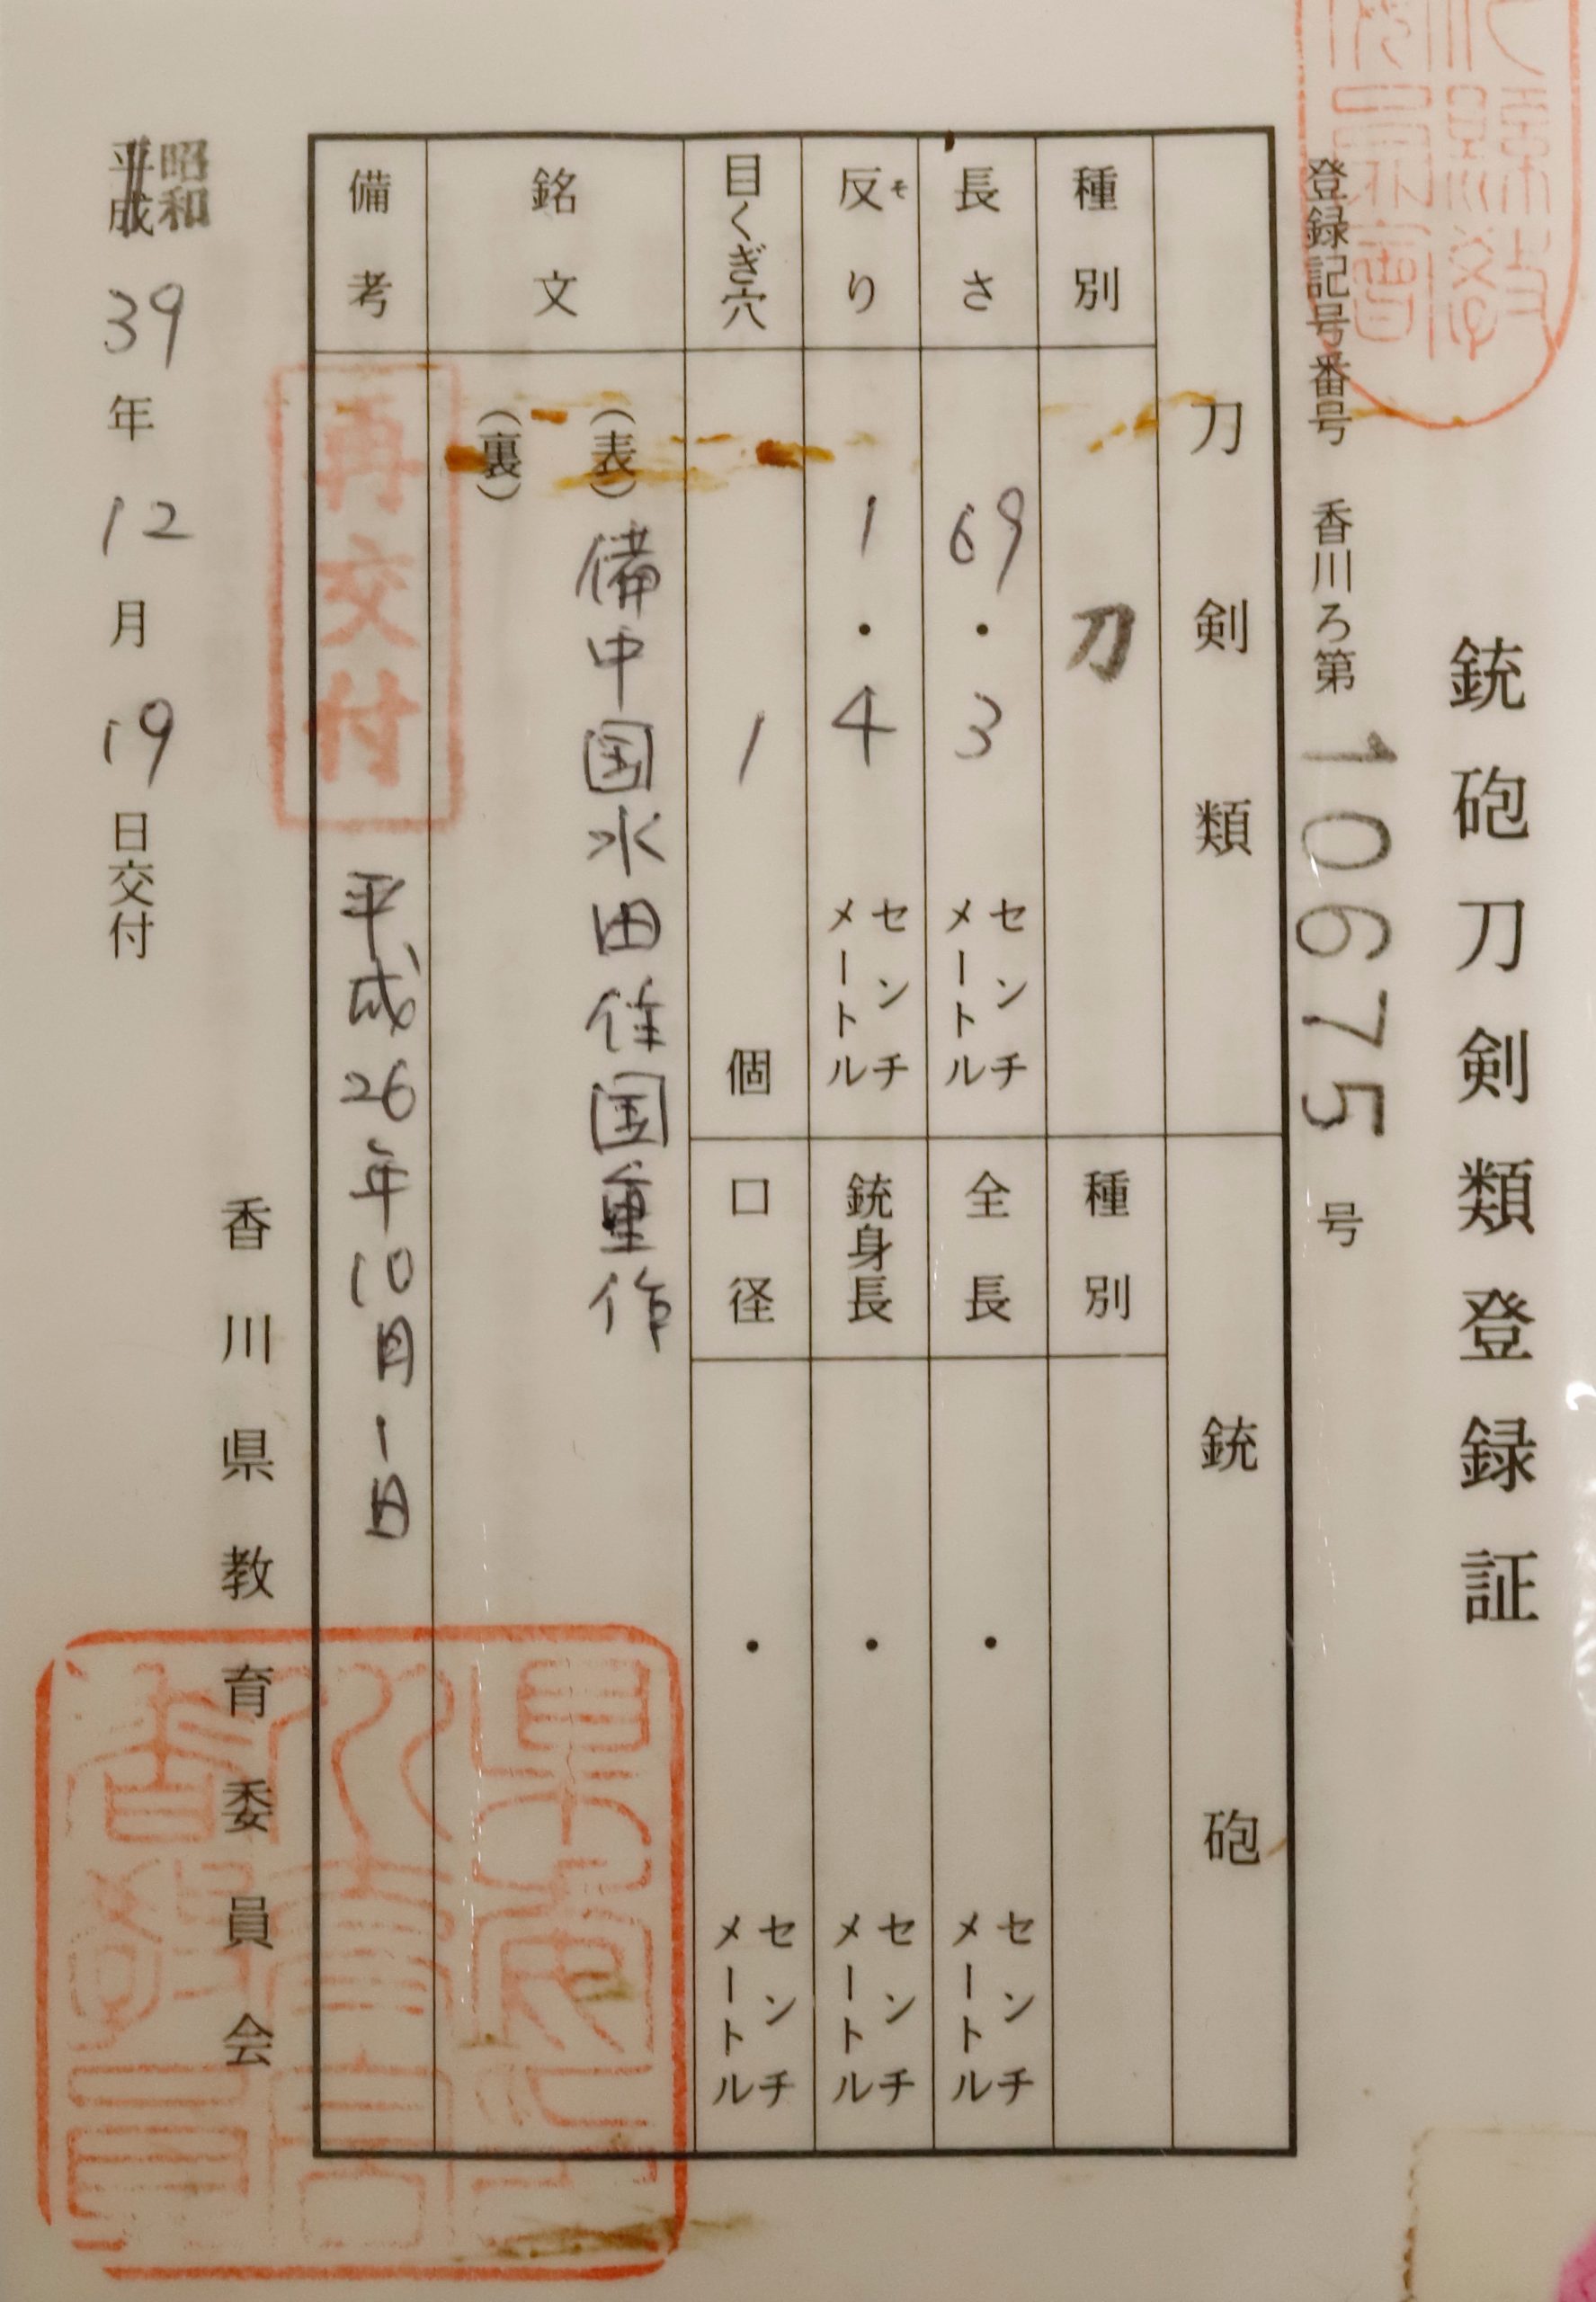 銃砲刀剣類登録証
登録記号番号 香川ろ第 10675 号
刀剣類
種別 刀
長さ 69・3 センチメートル
反り 1・4 センチメートル
そ
目くぎ穴 1 個
銃砲
種別
全長 ・ センチメートル
銃身長 ・ センチメートル
口径 ・ センチメートル
銘文
(表) 備中国水田住国重作
(裏)
備考
再交付
平成26年10月1日
香川県教育委員会
昭和
平成 39年12月19日交付